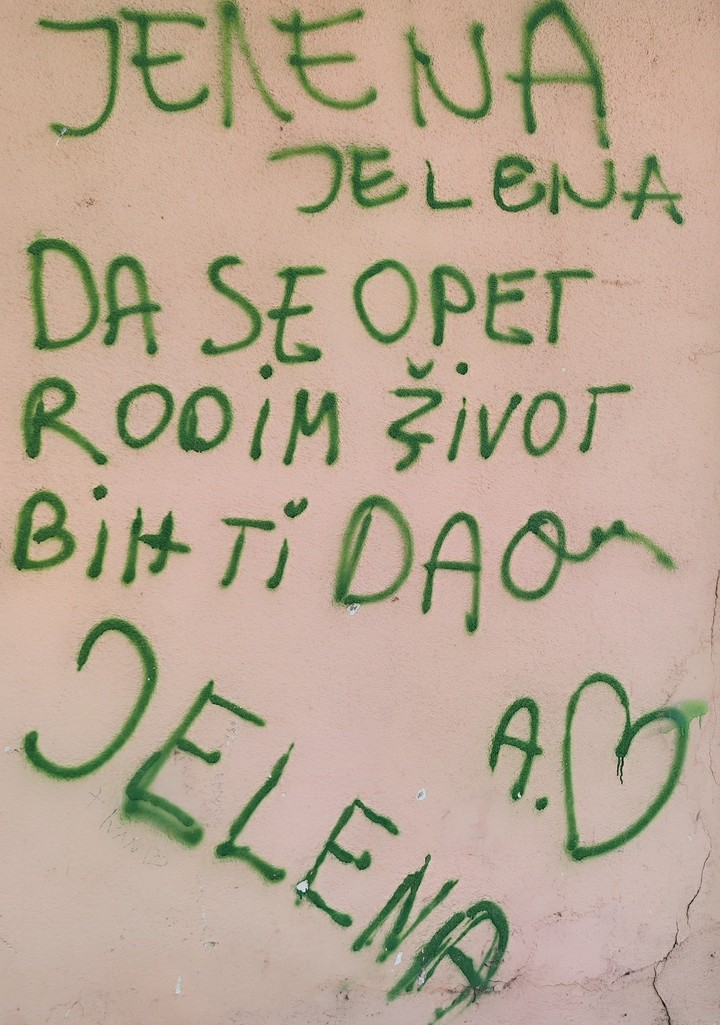 JELENA
JELENA
DA SE OPET
RODIM ŽIVOT
BIH TI DAO
JELENA
A.